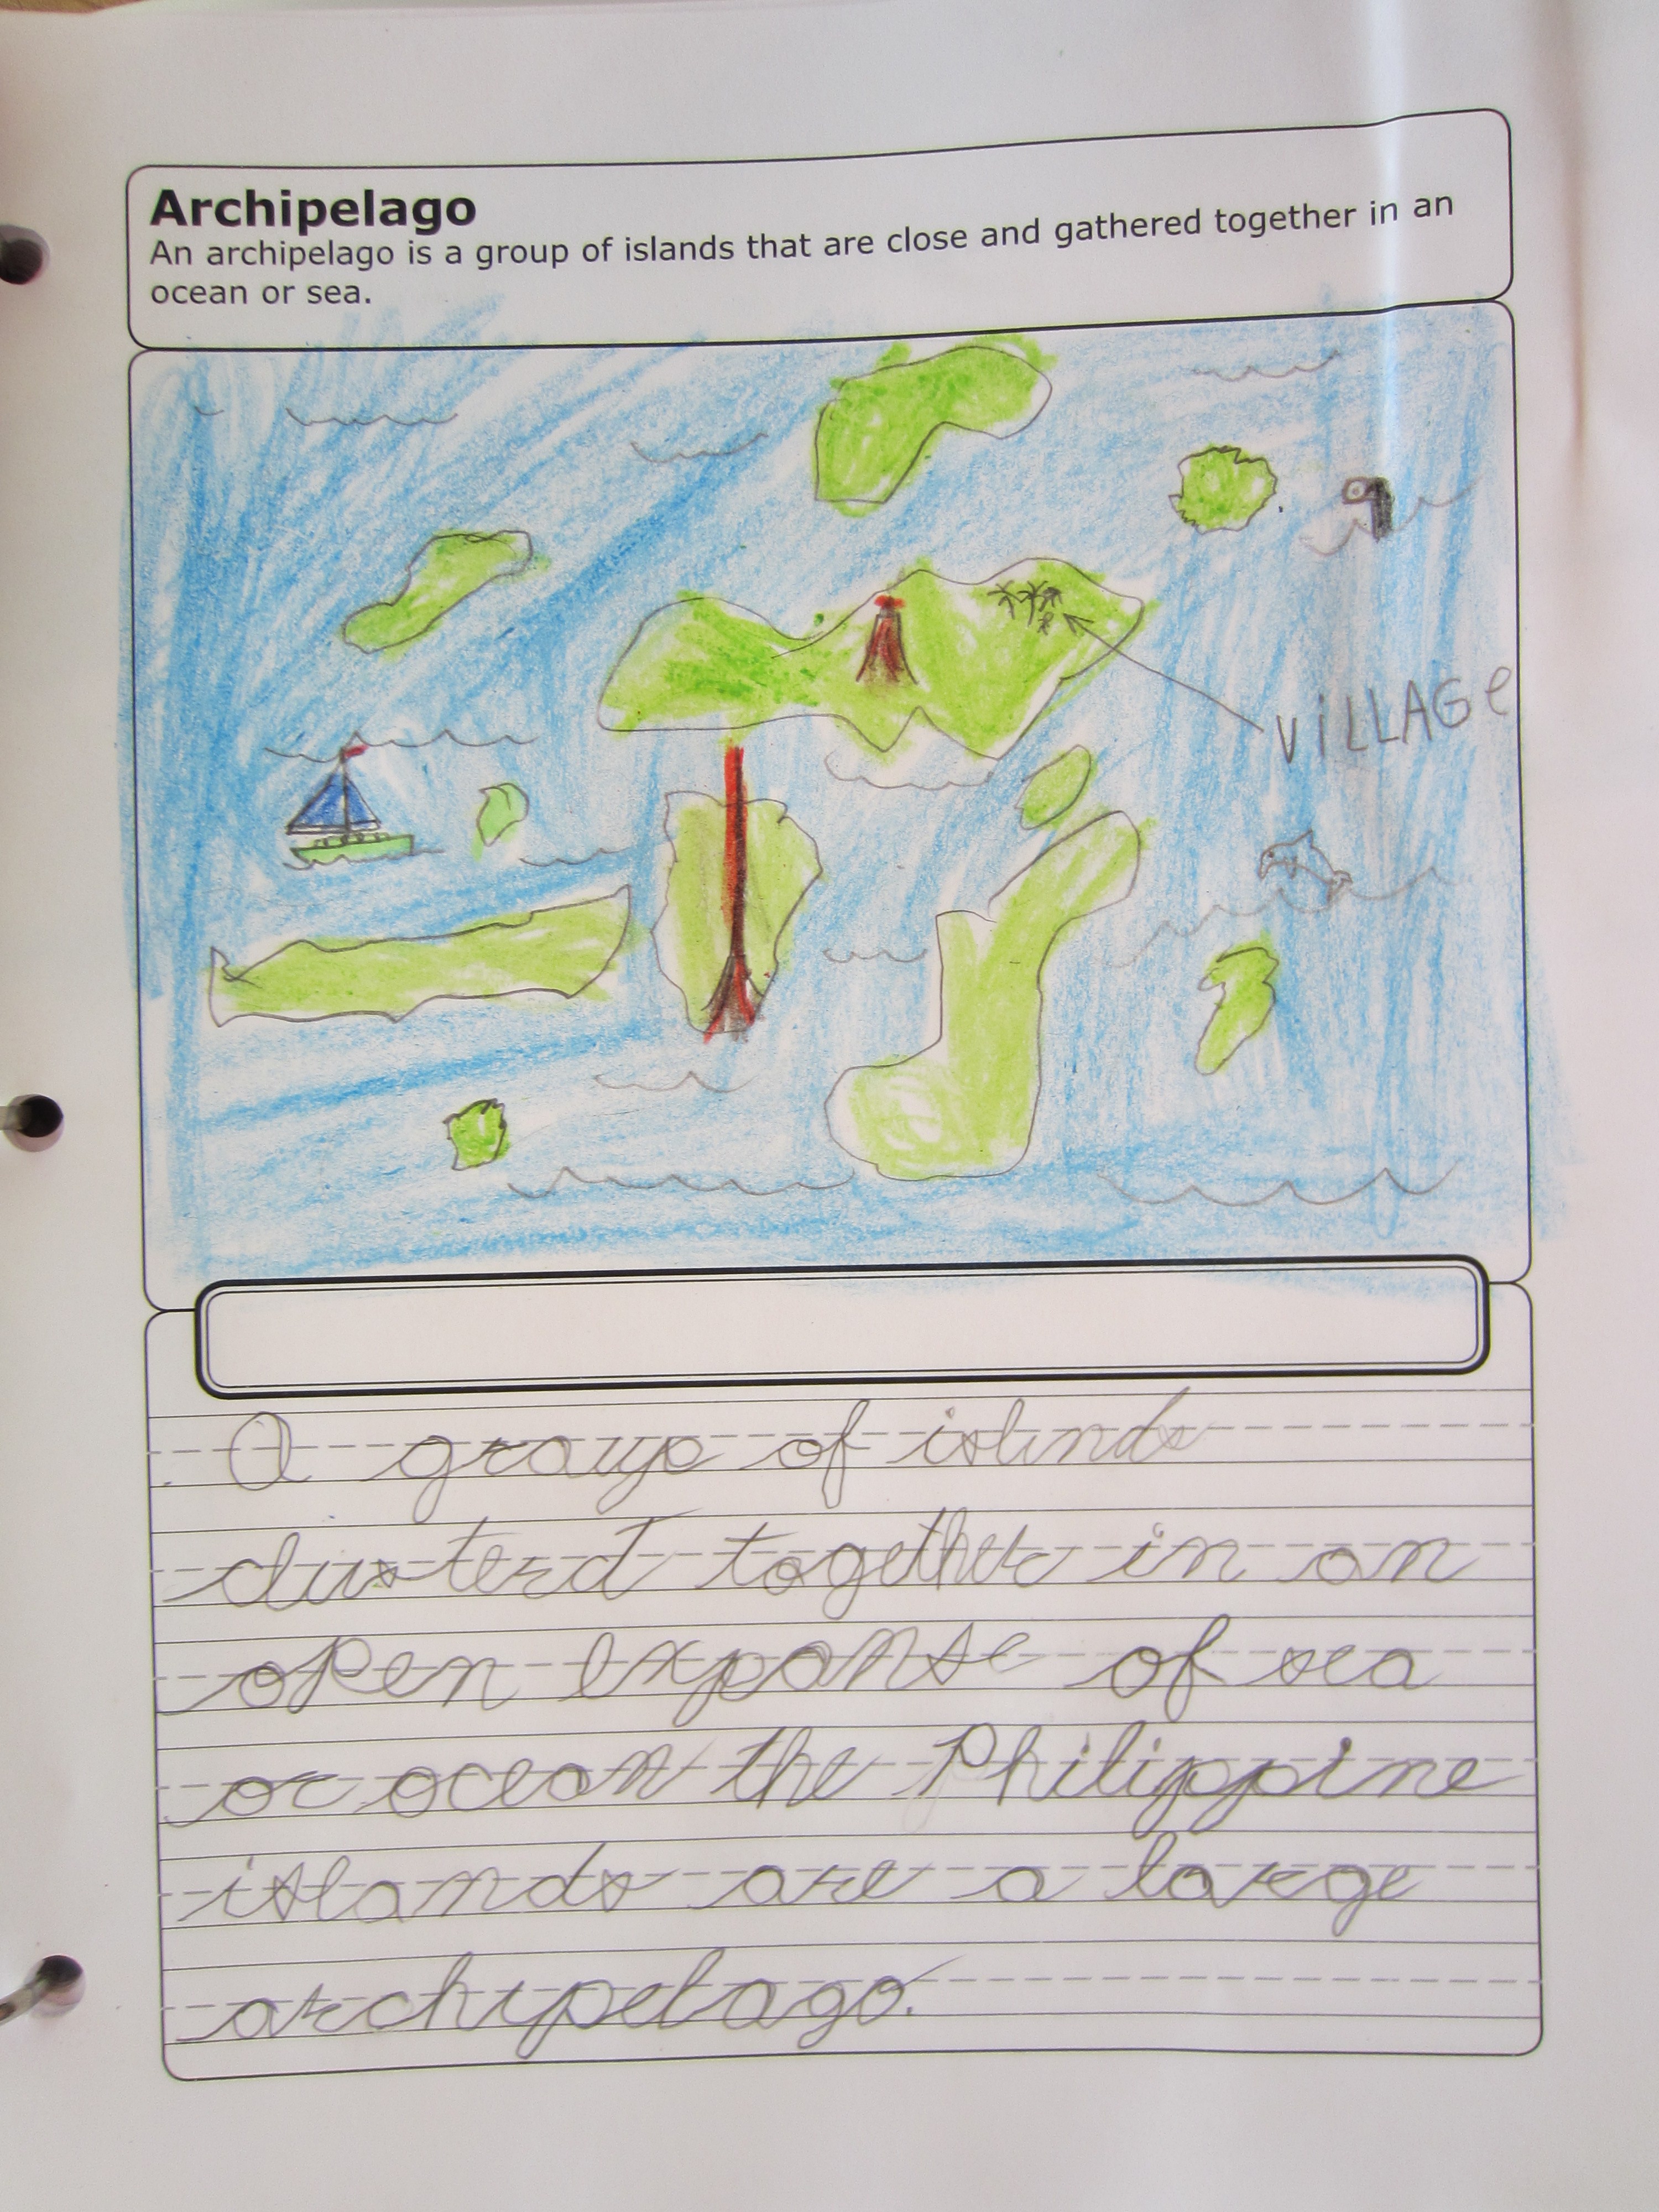 Archipelago
An archipelago is a group of islands that are close and gathered together in an
ocean or sea.
VILLAGe
A group of islinds
clusterd together in an
open expanse of sea
or ocean the Philippine
islands are a large
archipelago.